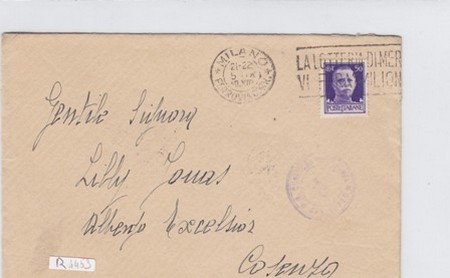 MILANO
21-22
LA LOTTERIA DI MER
VI MILION
50
POSTE ITALIANE
Gentile Signora
Lilly Jonas
Alberto Excelsior
Cosenza
R 3453